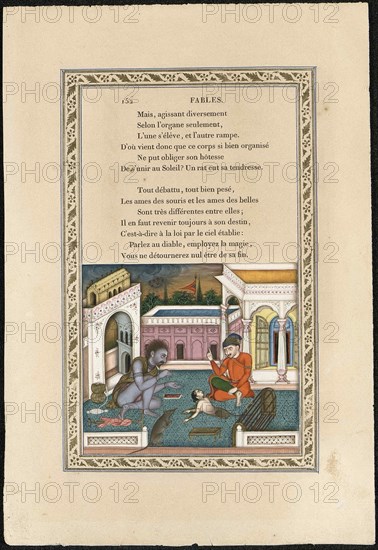 132 FABLES.
Mais, agissant diversement
Selon l'organe seulement,
L'une s'élève, et l'autre rampe.
D'où vient donc que ce corps si bien organisé
Ne put obliger son hôtesse
De s'unir au Soleil? Un rat eut sa tendresse.
Tout débattu, tout bien pesé,
Les ames des souris et les ames des belles
Sont très différentes entre elles;
Il en faut revenir toujours à son destin,
C'est-à-dire à la loi par le ciel établie:
Parlez au diable, employez la magie,
Vous ne détournerez nul être de sa fin.
PHOTO12